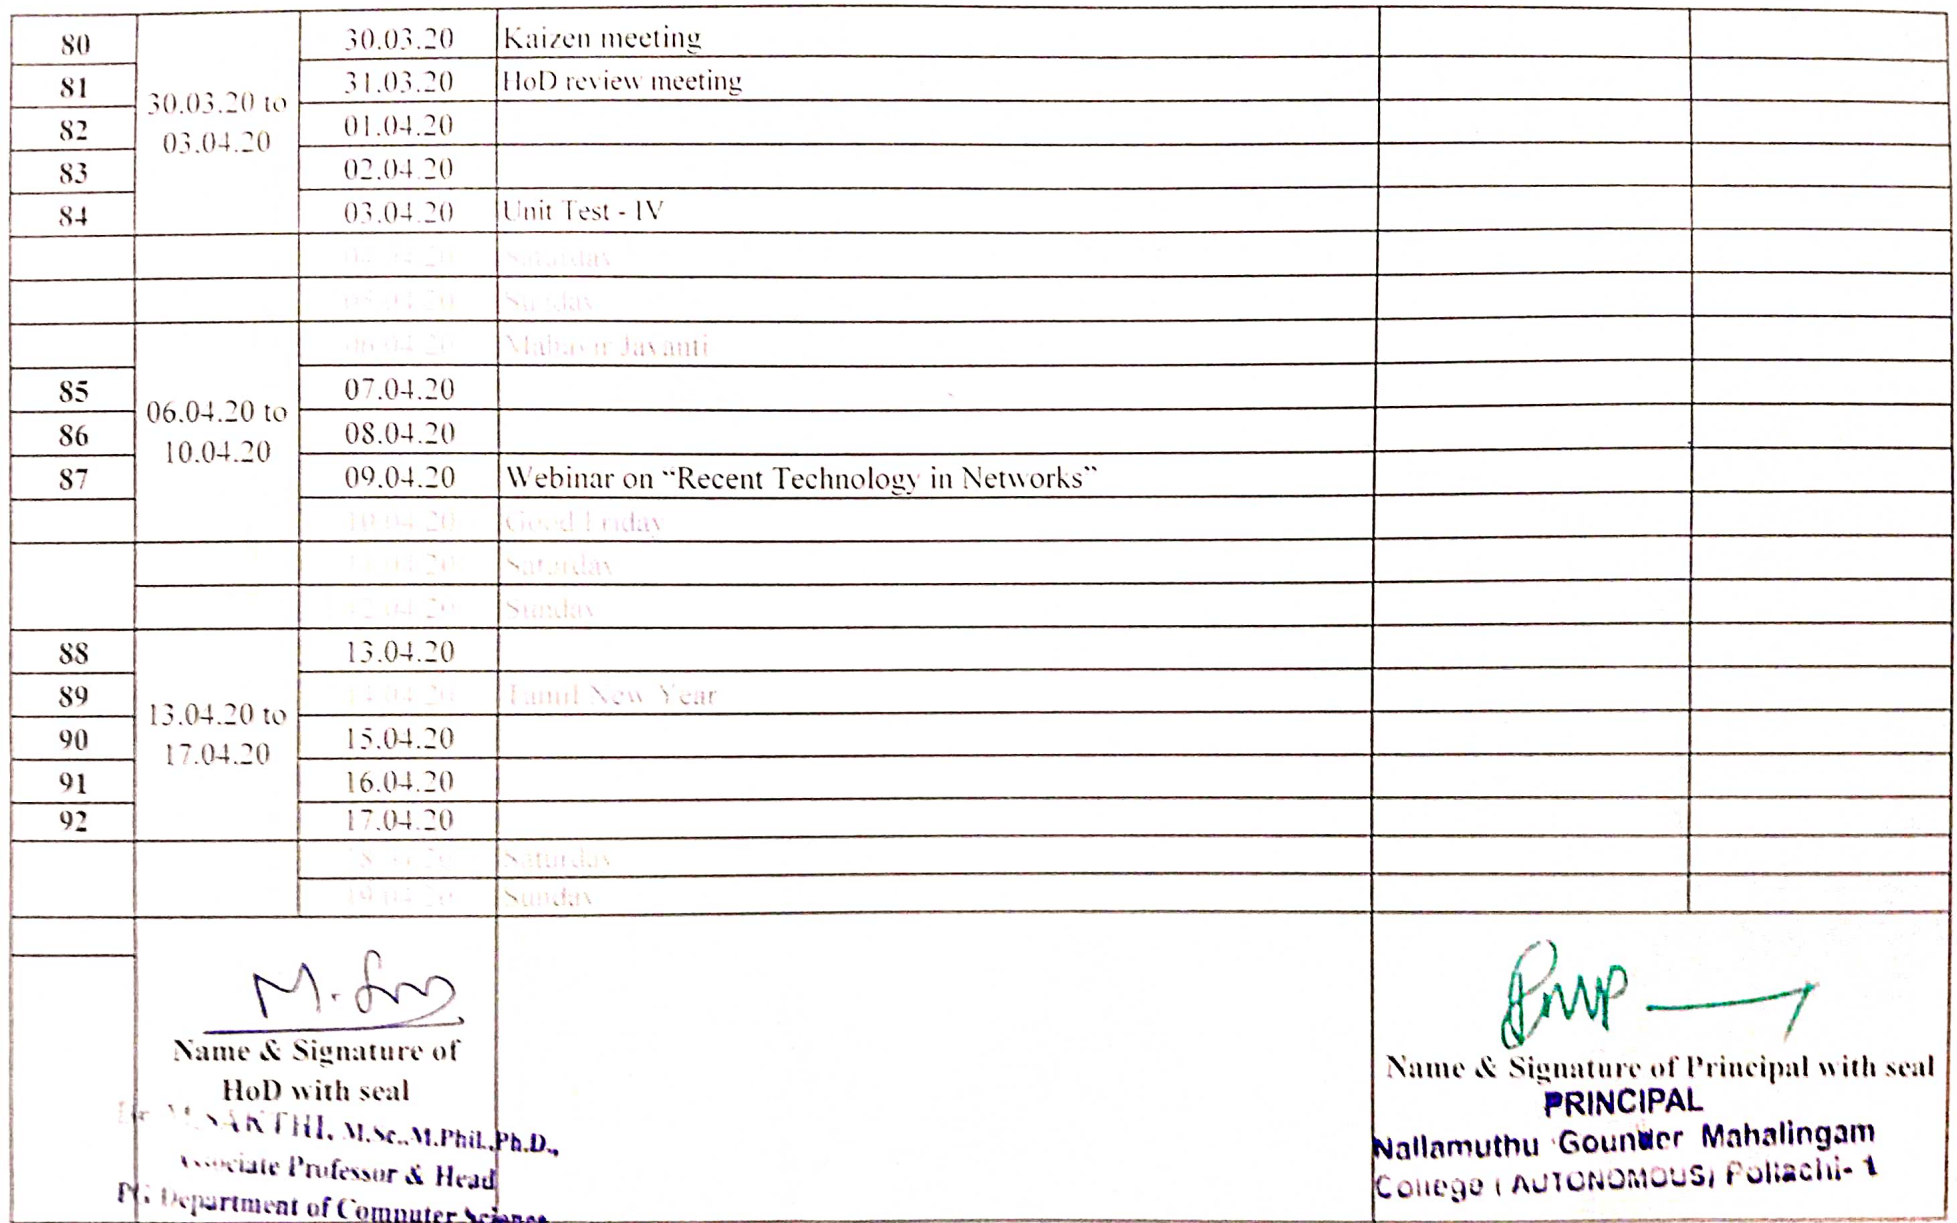 80 30.03.20 Kaizen meeting
81 31.03.20 HoD review meeting
30.03.20 to
03.04.20
82 01.04.20
83 02.04.20
84 03.04.20 Unit Test - IV
04.04.20 Saturday
05.04.20 Sunday
06.04.20 Mahavir Jayanti
85 07.04.20
06.04.20 to
10.04.20
86 08.04.20
87 09.04.20 Webinar on “Recent Technology in Networks”
10.04.20 Good Friday
11.04.20 Saturday
12.04.20 Sunday
88 13.04.20
89 14.04.20 Tamil New Year
13.04.20 to
17.04.20
90 15.04.20
91 16.04.20
92 17.04.20
18.04.20 Saturday
19.04.20 Sunday
Name & Signature of
HoD with seal
Dr. M.SAKTHI, M.Sc.,M.Phil.,Ph.D.,
Associate Professor & Head
PG Department of Computer Science
Name & Signature of Principal with seal
PRINCIPAL
Nallamuthu Gounder Mahalingam
College (AUTONOMOUS) Pollachi- 1